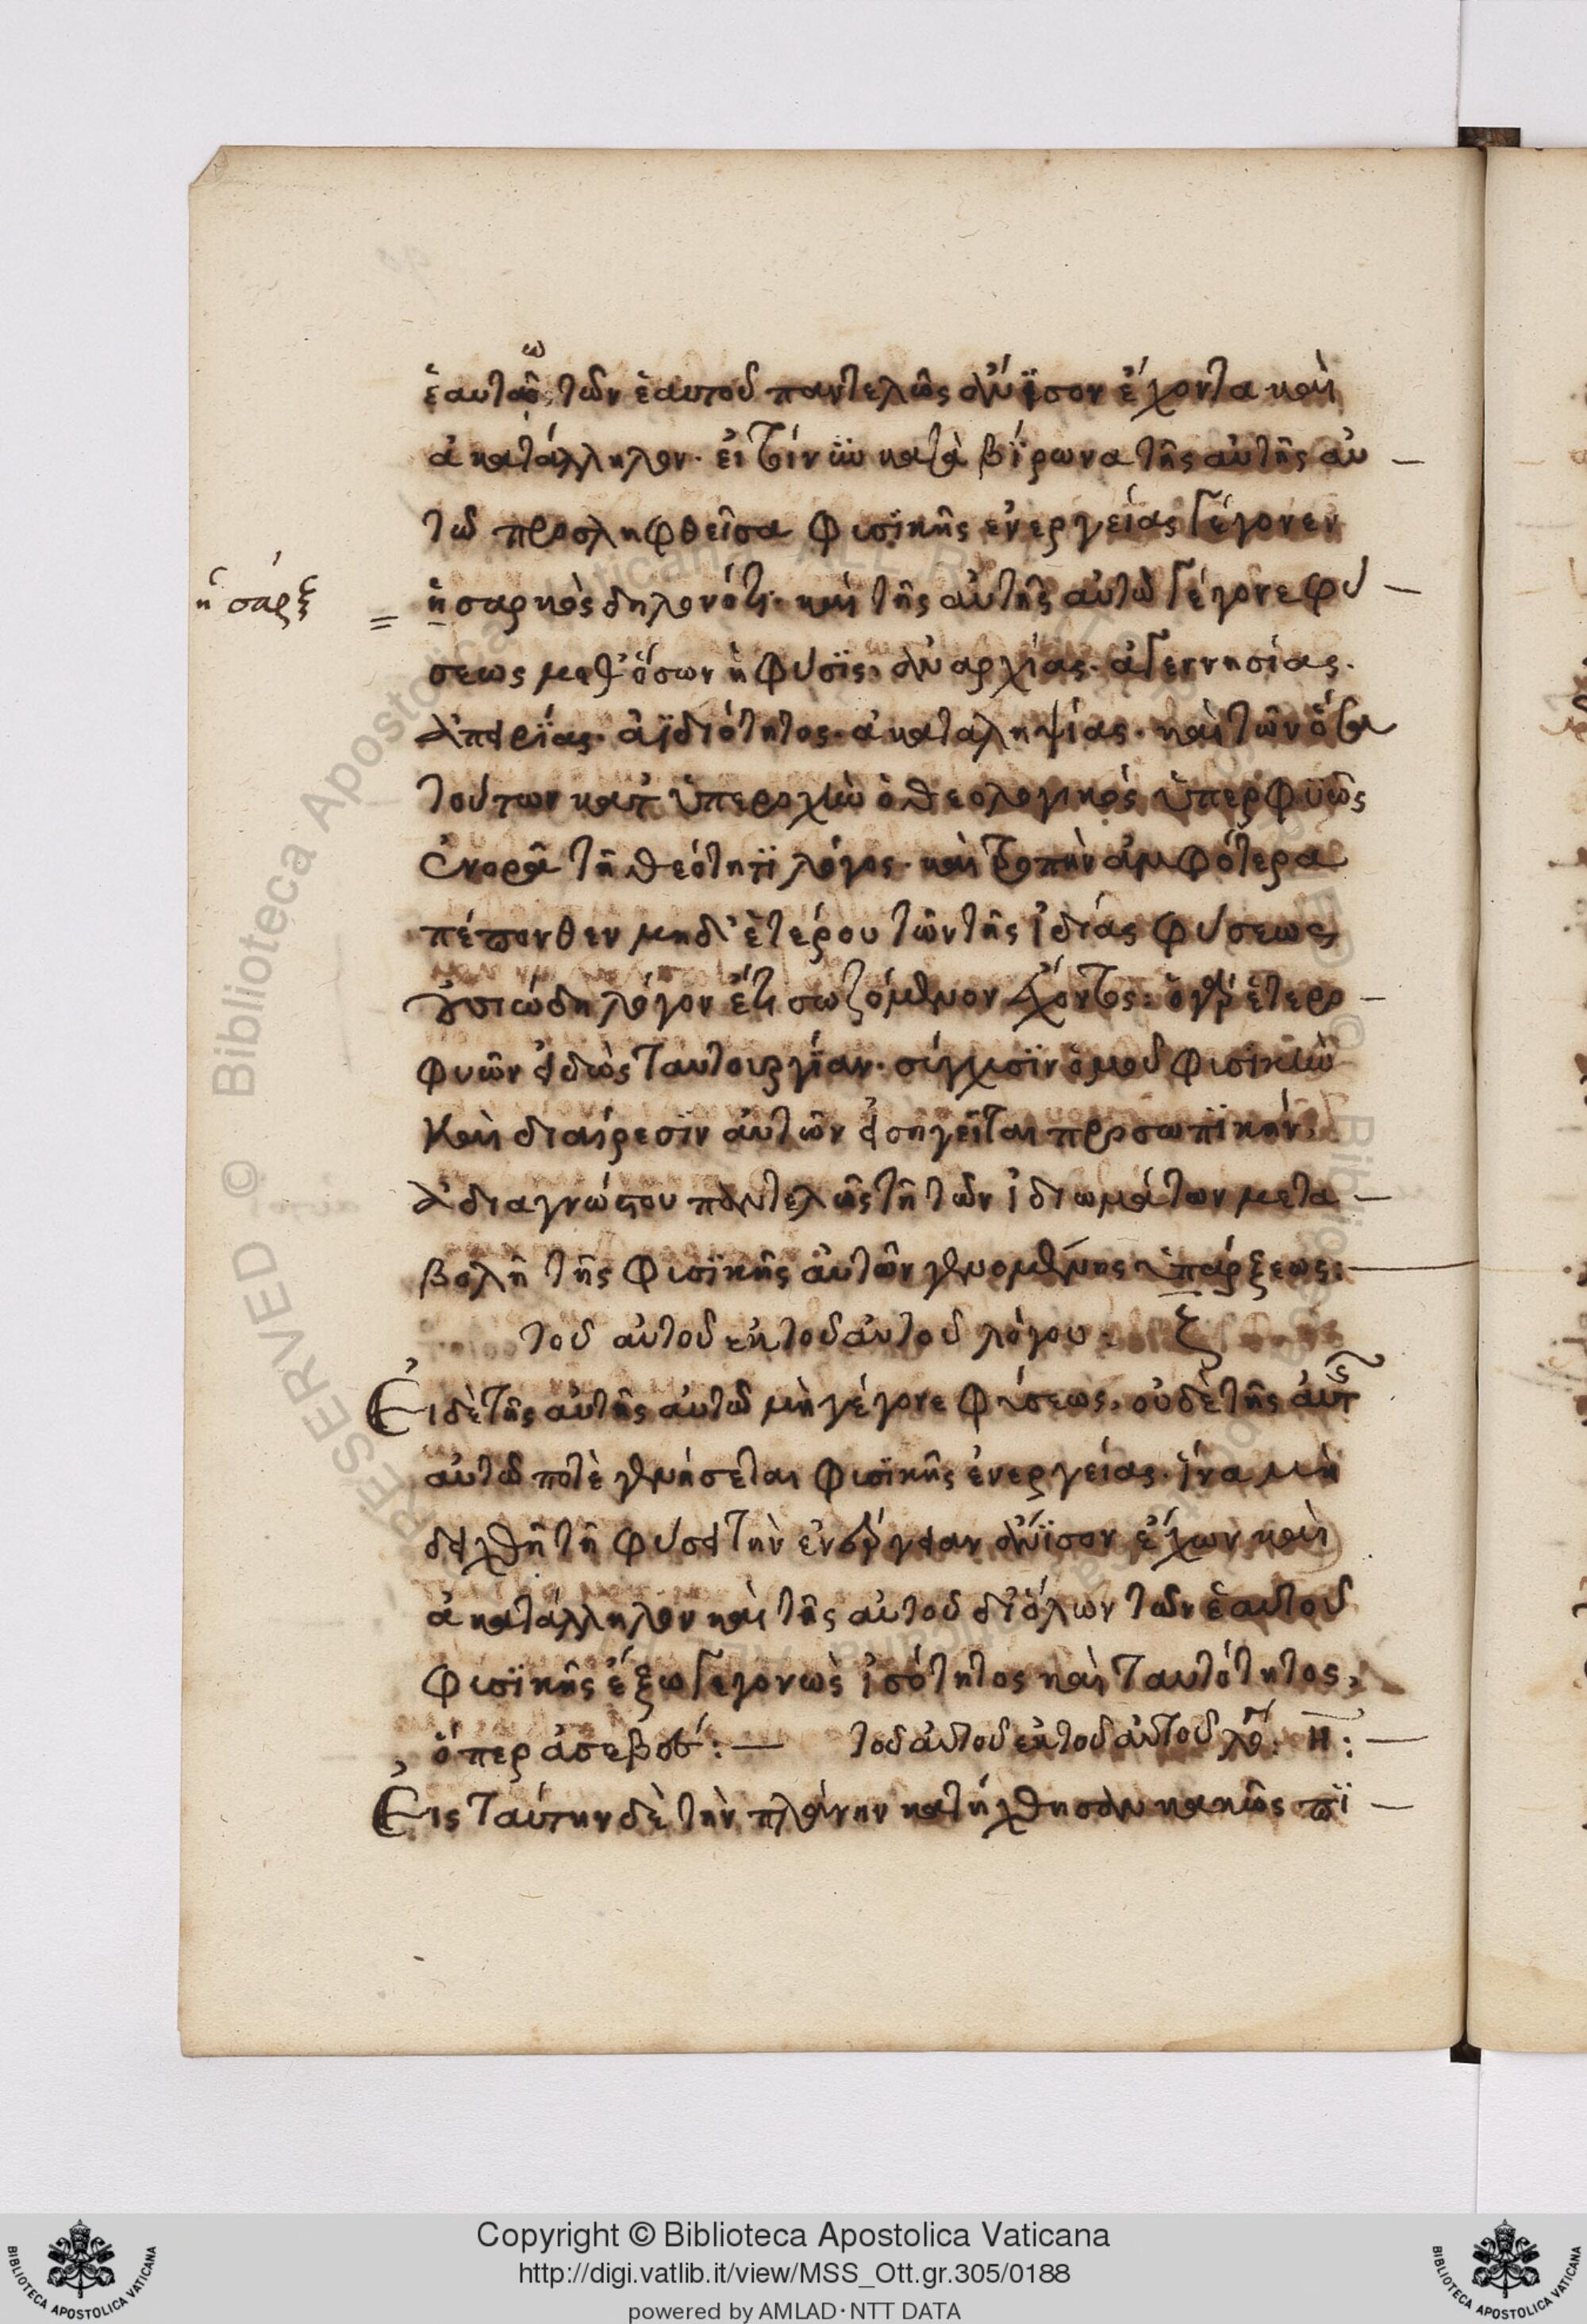 ἑαυτοῖς τῶν ἑαυτοῦ παντελῶς ἄνϊσον ἔχοντα καὶ
ω
ἀκατάλληλον. εἰ τίνυν κατὰ βίρωνα τῆς αὐτῆς αυ
τῶ προσληφθεῖσα φυσϊκῆς ἐνεργείας γέγονεν
ἡ σαρκὸς δηλονότι. καὶ τῆς αὐτῆς αὐτῶ γέγονε φύ
ἡ σάρξ
σεως μεθ' ὅσων ἡ φύσϊς, ἀναρχίας. ἀγεννησίας.
ἀπειρΐας. ἀϊδιότητος. ἀκαταληψίας. καὶ τῶν ὅσα
τούτων κατ' ὑπεροχὴν ὁ θεολογικὸς ὑπερφυῶς
ἐνορᾶ τῆ θεότητϊ λόγος. καὶ τροπὴν ἀμφότερα
πέπονθεν μηδ' ἑτέρου τῶν τῆς ἰδίας φύσεως
οὐσιώδη λόγον ἔτι σωζόμενον ἔχοντος: ὁ γὰρ ἑτερο
φυῶν εἰδὼς ταυτουργΐαν. σύγχυσϊν ὁμοῦ φυσικὴν
καὶ διαίρεσϊν αὐτῶν εἰσηγεῖται προσωπϊκήν.
ἀδιαγνώστου παντελῶς τῆ τῶν ἰδιωμάτων μετα
βολῆ τῆς φυσϊκῆς αὐτῶν γενομένης ὑπάρξεως:
τοῦ αὐτοῦ ἐκ τοῦ αὐτοῦ λόγου. ζ
Εἰ δὲ τῆς αὐτῆς αὐτῶ μὴ γέγονε φύσεως. οὐδὲ τῆς αὐτς
αὐτῶ ποτὲ γενήσεται φυσϊκῆς ἐνεργείας. ἵνα μὴ
δειχθῆ τῆ φύσει τὴν ἐνέργειαν ἄνϊσον ἔχων καὶ
ἀκατάλληλον καὶ τῆς αὐτοῦ δι' ὅλων τῶν ἑαυτοῦ
φυσϊκῆς ἔξω γεγονὼς ἰσότητος καὶ ταυτότητος,
ὅπερ ἀσεβές: τοῦ αὐτοῦ ἐκ τοῦ αὐτοῦ λό: Η:
Εἰς ταύτην δὲ τὴν πλάνην κατήχθησαν κακῶς πϊ
Copyright © Biblioteca Apostolica Vaticana
http://digi.vatlib.it/view/MSS_Ott.gr.305/0188
powered by AMLAD·NTT DATA
BIBLIOTECA APOSTOLICA VATICANA
BIBLIOTECA APOSTOLICA VATICANA